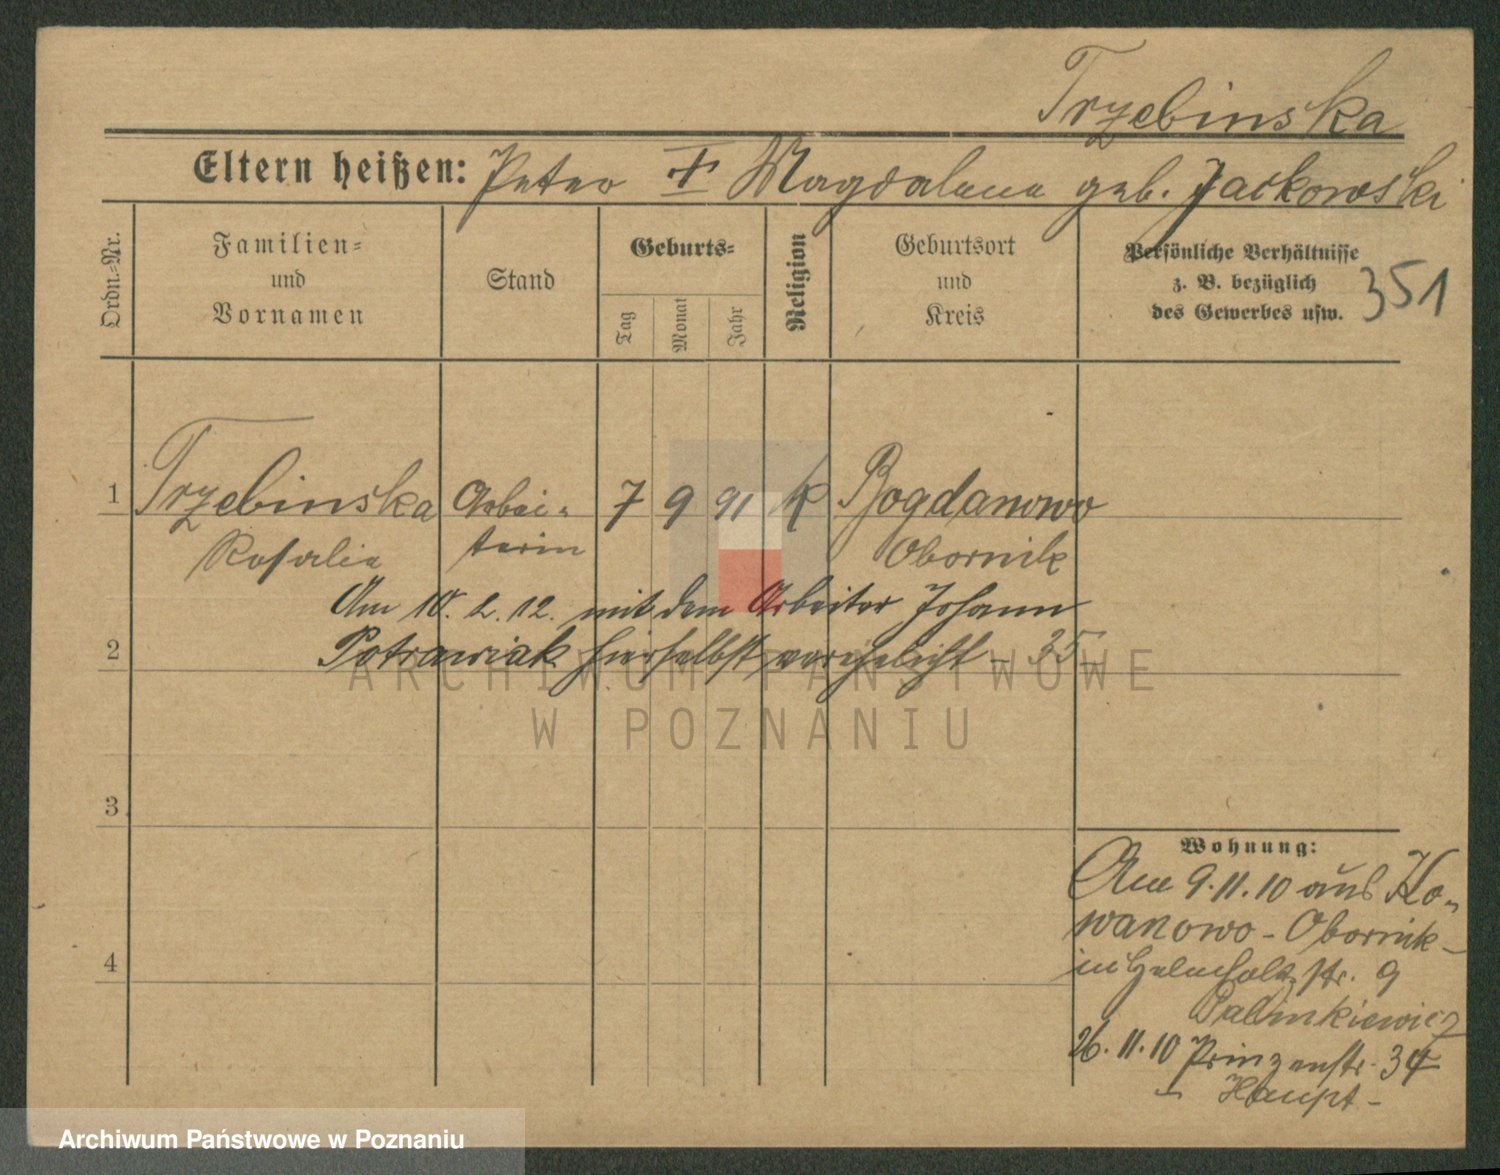 Trzebinska
Eltern heißen: Peter † Magdalena geb. Jackowski
Ordn.-Nr.
Familien-
und
Vornamen
Stand
Geburts-
Tag
Monat
Jahr
Religion
Geburtsort
und
Kreis
Persönliche Verhältnisse
z. B. bezüglich
des Gewerbes usw.
351
1 Trzebinska Arbei- 7 9 91 k Bogdanowo
Rosalie terin Obornik
Am 10. 2. 12. mit dem Arbeiter Johann
2 Potrawiak hierselbst verehelicht - 35 -
3
4
Wohnung:
Am 9.11.10 aus Ko-
wanowo - Obornik -
in Helmholtzstr. 9
26.11.10 Prinzenstr. 34
Haupt -
ARCHIWUM PAŃSTWOWE
W POZNANIU
Archiwum Państwowe w Poznaniu